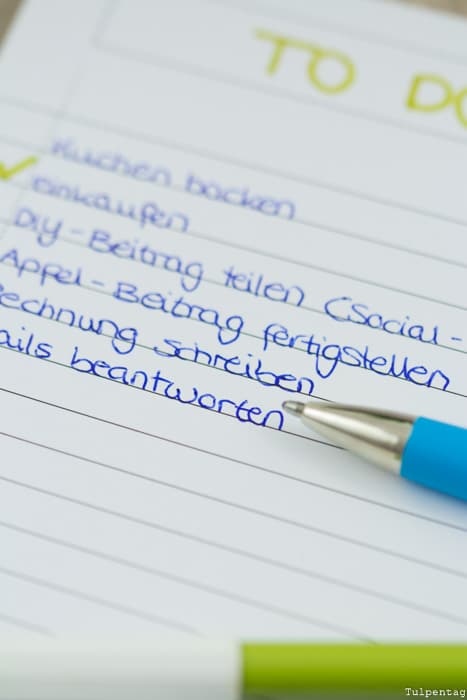 TO DO
Kuchen backen
einkaufen
Diy-Beitrag teilen (Social-
Appel-Beitrag fertigstellen
Rechnung schreiben
ails beantworten
Tulpentag